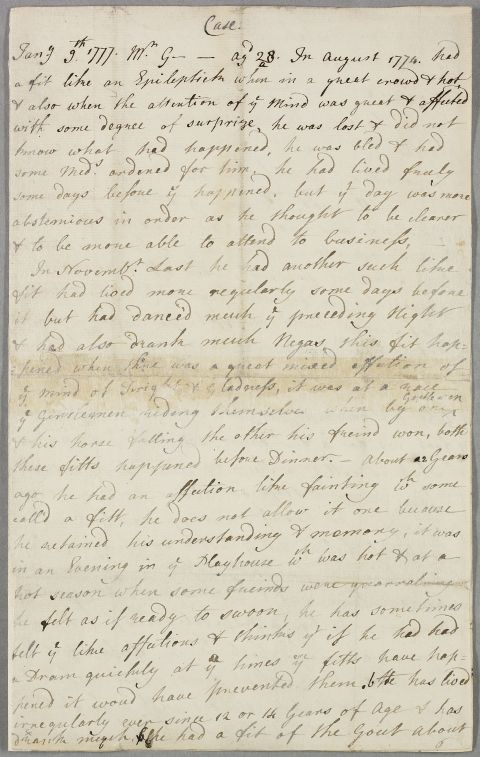 Case.
Jany. 9th 1777. Mr. G— — agd 28. In August 1774. had
a fit like an Epileptick when in a great crowd & hot
& also when the attention of ye Mind was great & affected
with some degree of surprize, he was lost & did not
know what had happened, he was bled & had
some Meds. ordered for him, he had lived freely
some days before it happened. but yt day was more
abstemious in order as he thought to be clearer
& to be more able to attend to business,
In Novembr. Last he had another such like
fit had lived more regularly some days before
it but had danced much ye preceding Night
& had also drank much Negas, this fit hap=
=pened when there was a great mixed affection of
ye mind of Fright & Gladness, it was at a race
ye Gentlemen riding themselves when by one
& his horse falling the other his freind won, both
these fitts happened before Dinner. — About 12 Years
ago he had an affection like fainting wch some
call'd a fitt, he does not allow it one because
he retained his understanding & memory, it was
in an Evening in ye Playhouse wch was hot & at a
hot season when some freinds were quarralling
he felt as if ready to swoon, he has sometimes
felt ye like affections & thinks yt if he had had
a Dram quickly at ye times ye fitts have hap=
pened it woud have prevented them. he has lived
irregularly ever since 12 or 14 Years of Age & has
drank much, he had a fit of the Gout about